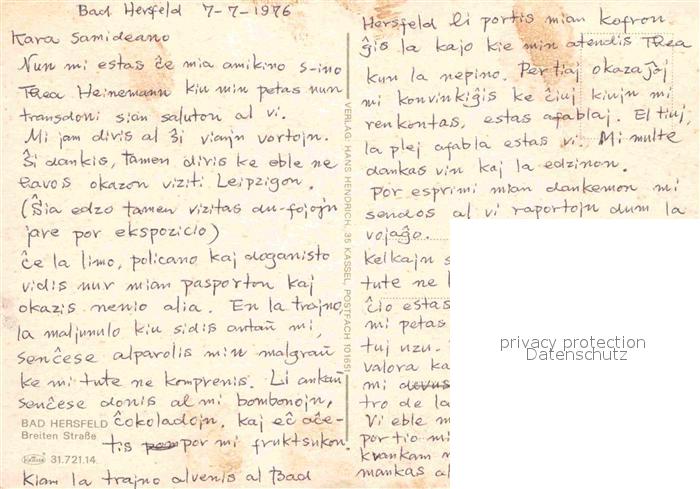 Bad Hersfeld 7-7-1976
Kara Samideano
Nun mi estas ĉe mia amikino s-ino
Thea Heinemann kiu min petas nun
transdoni sian saluton al vi.
Mi jam diris al ŝi viajn vortojn.
Ŝi dankis, tamen diris ke eble ne
havos okazon viziti Leipzigon.
(Ŝia edzo tamen vizitas du-fojojn
jare por ekspozicio)
Ĉe la limo, policano kaj doganisto
vidis nur mian pasporton kaj
okazis nenio alia. En la trajno,
la maljunulo kiu sidis antaŭ mi,
senĉese alparolis min malgraŭ
ke mi tute ne komprenis. Li ankaŭ
senĉese donis al mi bombonojn,
ĉokoladojn, kaj eĉ aĉe-
tis por mi fruktsukon.
Kiam la trajno alvenis al Bad
BAD HERSFELD
Breiten Straße
31.721.14
VERLAG: HANS HENDRICH, 35 KASSEL, POSTFACH 101651
Hersfeld li portis mian kofron
ĝis la kajo kie min atendis Thea
kun la nepino. Per tiaj okazaĵoj
mi konvinkiĝis ke ĉiuj kiujn mi
renkontas, estas afablaj. El tiuj,
la plej afabla estas vi. Mi multe
dankas vin kaj la edzinon.
Por esprimi mian dankemon mi
sendos al vi raportojn dum la
vojaĝo.
kelkajn s
tute ne
ĉio estas
mi petas
tuj uzu.
valora ka
mi
tro de la
Vi eble m
portio mi
kvankam
mankas al
privacy protection
Datenschutz